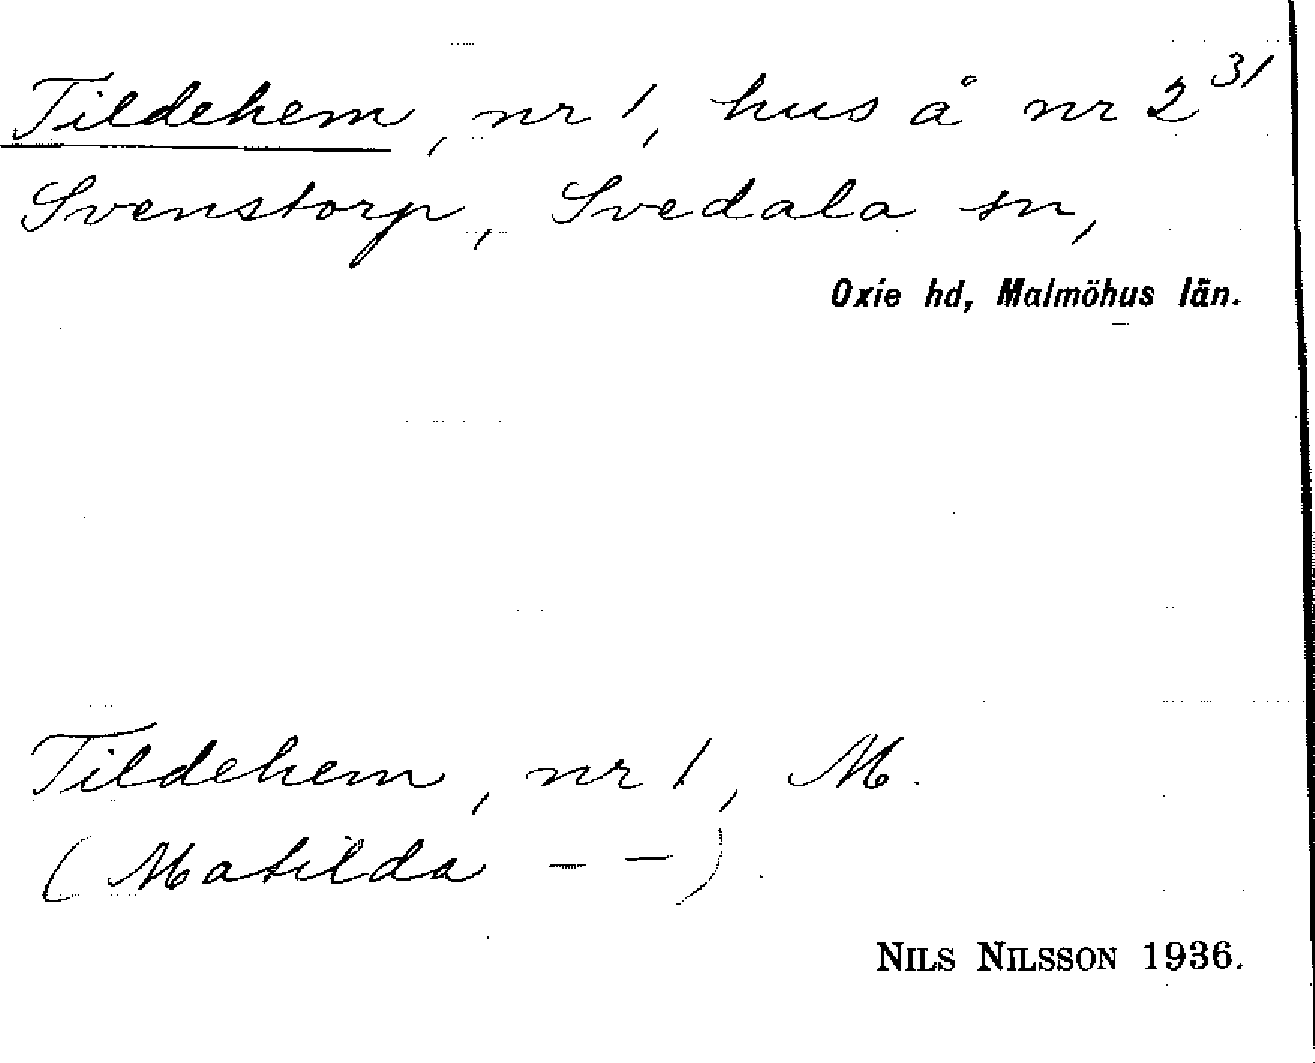 Tildehem, nr 1, hus å nr 2³¹
Svenstorp, Svedala sn,
Oxie hd, Malmöhus län.
Tildehem, nr 1, M.
(Matilda – –)
NILS NILSSON 1936.